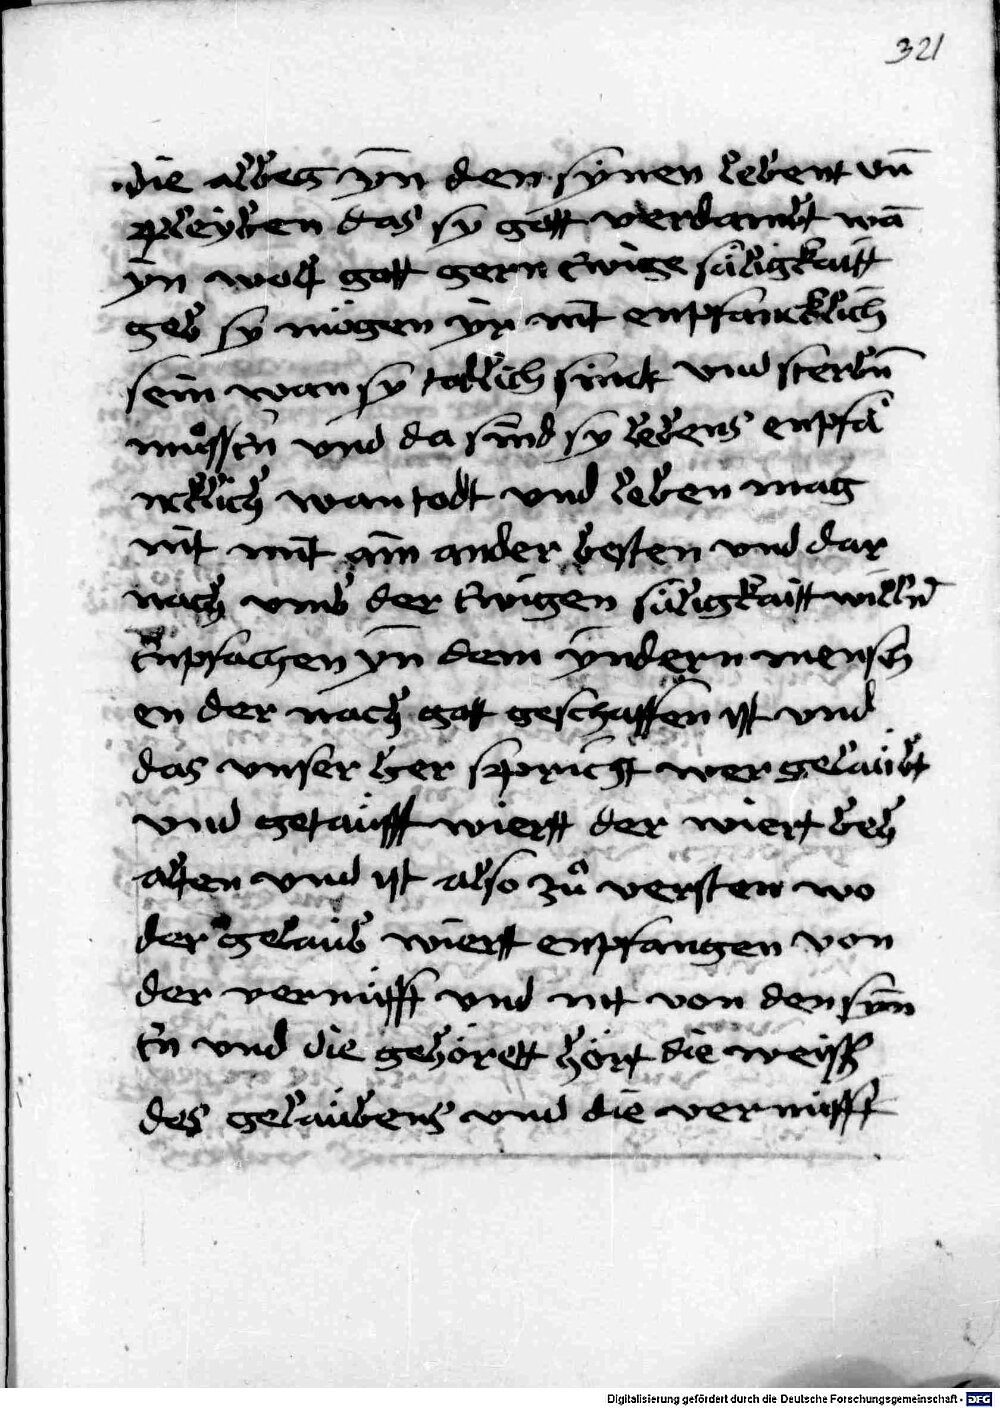 321
die albeg yn̄ den synen lebent vn̄
pleyben das sy gott verdambt wā
yn wolt gott gern Ewige säligkaitt
geb sy mögen yr nit enpfancklich
sein wan sy todlich sindt vnd sterbn̄
müssen vnd da sind sy lebens enpfā
ncklich wan todt vnd leben mag
nit mit aim ander besten vnd dar
nach vmb der Ewigen säligkaitt willn̄
Enpfachen yn̄ dem yndern mensch
en der nach got geschaffen yst vnd
das vnser her spricht wer gelaubt
vnd getaufft wiertt der wiert beh
alten vnd yst also zů versten wo
der gelaub wiertt enpfangen von
der vernufft vnd nit von den syn̄
en vnd die gehörett hört die weiss
des gelaubens vnd die vernufft
Digitalisierung gefördert durch die Deutsche Forschungsgemeinschaft - DFG